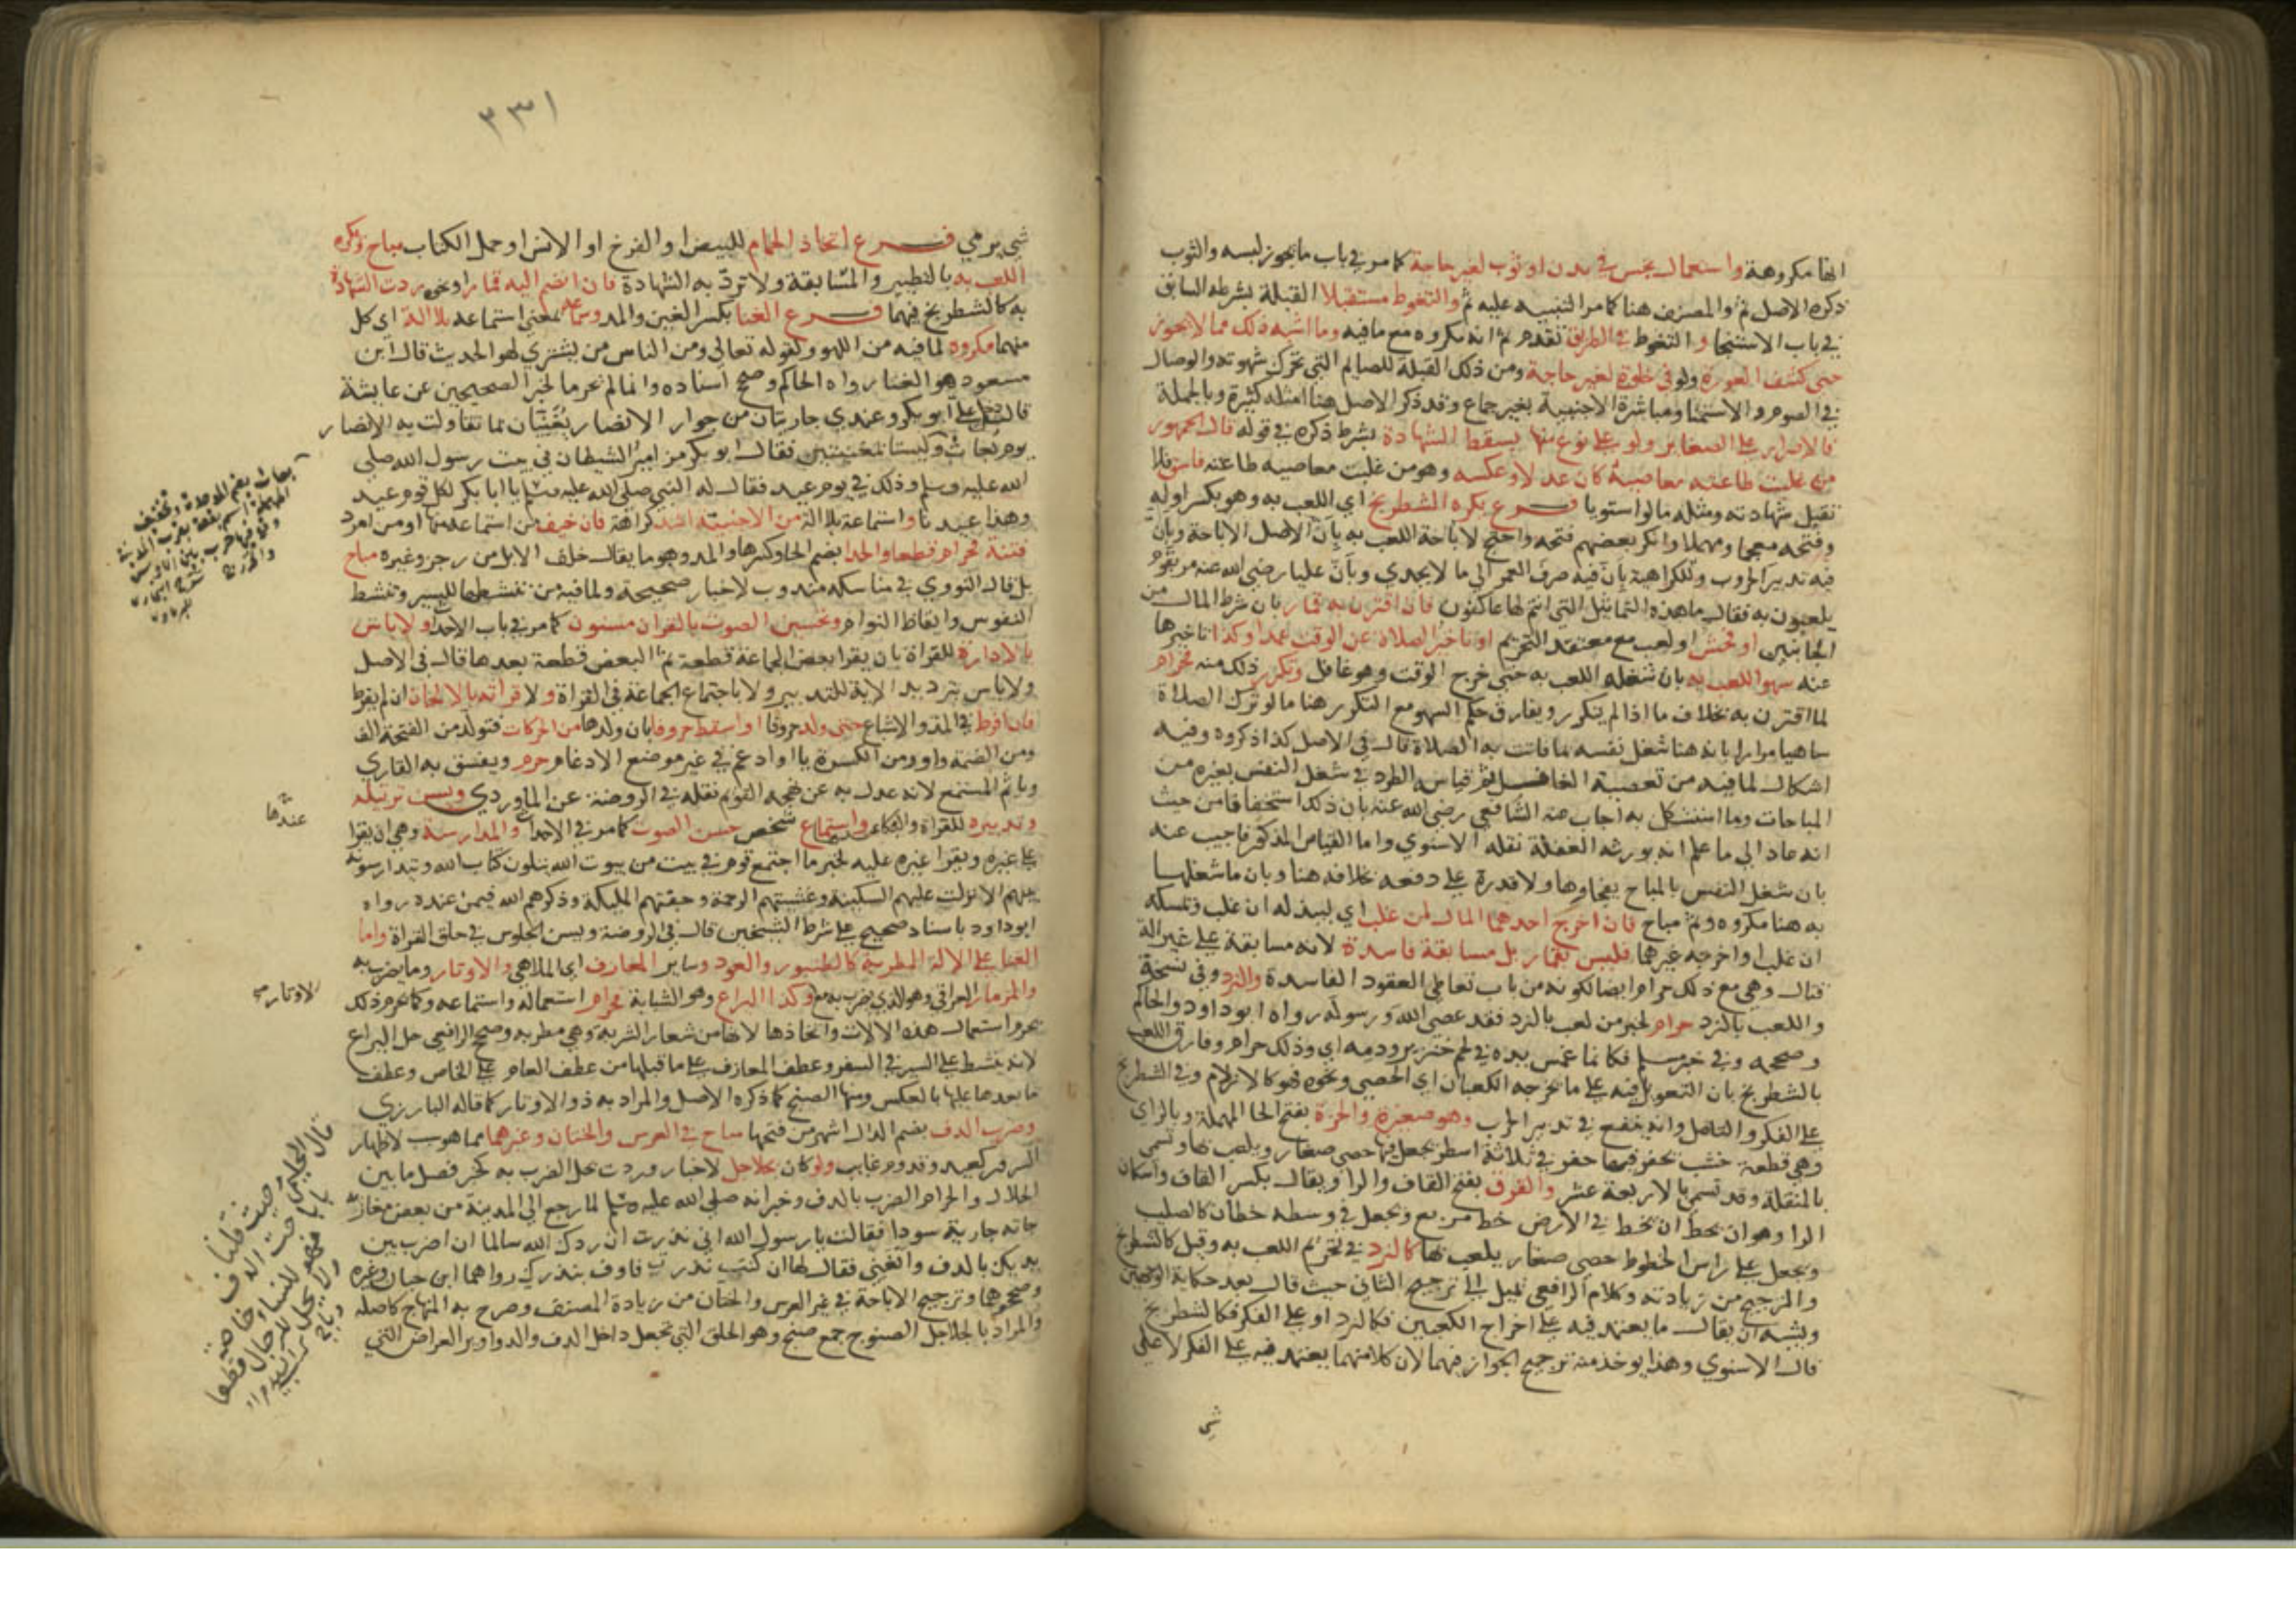 انها مكروهة واستعمال نجس في بدن او ثوب لغير حاجة كما مر في باب ما يجوز لبسه والثوب
ذكره الاصل ثم والمصنف هنا كما مر التنبيه عليه ثم والتغوط مستقبلا القبلة بشرطه السابق
في باب الاستنجا والتغوط في الطريق تقدم ثم انه مكروه مع ما فيه وما اشبه ذلك مما لا يجوز
حتى كشف العورة ولو في خلوة لغير حاجة ومن ذلك القبلة للصايم التي تحرك شهوته والوصال
في الصوم والاستمنا ومباشرة الاجنبية بغير جماع وقد ذكر الاصل هنا امثلة كثيرة وبالجملة
فالاصرار على الصغاير ولو على نوع منها يسقط الشهادة بشرط ذكره في قوله قال الجمهور
من غلبت طاعته معاصيه كان عدلا وعكسه وهو من غلبت معاصيه طاعته فاسق فلا
تقبل شهادته ومثله ما لو استويا فرع يكره الشطرنج اي اللعب به وهو بكسر اوله
وفتحه معجما ومهملا وانكر بعضهم فتحه واحتج لاباحة اللعب به بان الاصل الاباحة وبان
فيه تدبير الحروب وللكراهية بان فيه صرف العمر الى ما لا يجدي وبان عليا رضي الله عنه مر بقوم
يلعبون به فقال ما هذه التماثيل التي انتم لها عاكفون فان اقترن به قمار بان شرط المال من
الجانبين او فحش او لعب مع معتقد التحريم او تاخير الصلاة عن الوقت عمدا وكذا تاخيرها
عنه سهوا للعب به بان شغله اللعب به حتى خرج الوقت وهو غافل وتكرر ذلك منه فحرام
لما اقترن به بخلاف ما اذا لم يتكرر ويفارق حكم السهو مع التكرر هنا ما لو ترك الصلاة
ساهيا مرارا بانه هنا شغل نفسه بما فاتت به الصلاة قال في الاصل كذا ذكروه وفيه
اشكال لما فيه من تعصية الغافل ثم قياسه الطرد في شغل النفس بغيره من
المباحات وما استشكل به اجاب عنه الشافعي رضي الله عنه بان ذلك استخفافا من حيث
انه عاد الى ما علم انه يورثه الغفلة نقله الاسنوي واما القياس المذكور فاجيب عنه
بان شغل النفس بالمباح يفجاوها ولا قدرة على دفعه بخلافه هنا وبان ما شغلها
به هنا مكروه وثم مباح فان اخرج احدهما المال لمن غلب اي ليبذله ان غلب ويمسكه
ان غلب او اخرجه غيرهما فليس بقمار بل مسابقة فاسدة لانه مسابقة على غير الة
قتال وهي مع ذلك حرام ايضا لكونه من باب تعاطي العقود الفاسدة والنرد وفي نسخة
واللعب بالنرد حرام لخبر من لعب بالنرد فقد عصى الله ورسوله رواه ابو داود والحاكم
وصححه وفي خبر مسلم فكانما غمس يده في لحم خنزير ودمه اي وذلك حرام وفارق اللعب
بالشطرنج بان التعويل فيه على ما يخرجه الكعبان اي الحصى ونحوه فهو كالازلام وفي الشطرنج
على الفكر والتامل وانه ينفع في تدبير الحرب وهو صغيرة والحزة بفتح الحا المهملة وبالزاي
وهي قطعة خشب يحفر فيها حفر في ثلاثة اسطر يجعل فيها حصى صغار ويلعب بها وتسمى
بالمنقلة وقد تسمى بالاربعة عشر والقرق بفتح القاف والرا ويقال بكسر القاف واسكان
الرا وهو ان يخط في الارض خط مربع ويجعل في وسطه خطان كالصليب
ويجعل على راس الخطوط حصى صغار يلعب بها كالنرد في تحريم اللعب به وقيل كالشطرنج
والترجيح من زيادته وكلام الرافعي يميل الى ترجيح الثاني حيث قال بعد حكاية الوجهين
ويشبه ان يقال ما يعتمد فيه على اخراج الكعبين فكالنرد او على الفكر فكالشطرنج
قال الاسنوي وهذا يوخذ منه ترجيح الجواز فيهما لان كلا منهما يعتمد فيه على الفكر لا على
شي
٣٣١
شي يرمي فرع اتخاذ الحمام للبيض او الفرخ او الانس او حمل الكتاب مباح ويكره
اللعب به بالتطيير والمسابقة ولا ترد به الشهادة فان انضم اليه قمار او نحوه ردت الشهادة
به كالشطرنج فيهما فرع الغنا بكسر الغين والمد وسماعه بمعنى استماعه بلا الة اي كل
منهما مكروه لما فيه من اللهو ولقوله تعالى ومن الناس من يشتري لهو الحديث قال ابن
مسعود هو الغنا رواه الحاكم وصحح اسناده وانما لم يحرما لخبر الصحيحين عن عايشة
قالت دخل علي ابو بكر وعندي جاريتان من جوار الانصار يغنيان بما تقاولت به الانصار
يوم بعاث وليستا بمغنيتين فقال ابو بكر مزامير الشيطان في بيت رسول الله صلى
الله عليه وسلم وذلك في يوم عيد فقال له النبي صلى الله عليه وسلم يا ابا بكر لكل قوم عيد
وهذا عيدنا واستماعه بلا الة من الاجنبية اشد كراهة فان خيف من استماعه منها او من امرد
فتنة فحرام قطعا والحدا بضم الحا وكسرها والمد وهو ما يقال خلف الابل من رجز وغيره مباح
بل قال النووي في مناسكه مندوب لاخبار صحيحة ولما فيه من تنشيطها للسير وتنشيط
النفوس وايقاظ النوام وتحسين الصوت بالقران مسنون كما مر في باب الاحداث ولا باس
بالادارة للقراة بان يقرا بعض الجماعة قطعة ثم البعض قطعة بعدها قال في الاصل
ولا باس بترديد الاية للتدبر ولا باجتماع الجماعة في القراة ولا قراته بالالحان ان لم يفرط
فان افرط في المد والاشباع حتى ولد حروفا او اسقط حروفا بان ولدها من الحركات فتولد من الفتحة الف
ومن الضمة واو ومن الكسرة يا او ادغم في غير موضع الادغام حرم ويفسق به القاري
وياثم المستمع لانه عدل به عن نهجه القويم نقله في الروضة عن الماوردي ويسن ترتيله
وتدبره للقراة والبكا عندها واستماع شخص حسن الصوت كما مر في الاحداث والمدارسة وهي ان يقرا
على غيره ويقرا غيره عليه لخبر ما اجتمع قوم في بيت من بيوت الله يتلون كتاب الله ويتدارسونه
بينهم الا نزلت عليهم السكينة وغشيتهم الرحمة وحفتهم المليكة وذكرهم الله فيمن عنده رواه
ابو داود باسناد صحيح على شرط الشيخين قال في الروضة ويسن الجلوس في حلق القراة واما
الغنا على الالة المطربة كالطنبور والعود وساير المعازف اي الملاهي والاوتار وما يضرب به
والمزمار العراقي وهو الذي يضرب به مع وكذا اليراع وهو الشبابة فحرام استعماله واستماعه وكما يحرم ذلك
يحرم استعمال هذه الالات واتخاذها لانها من شعار الشربة وهي مطربة وصحح الرافعي حل اليراع
لانه ينشط على السير في السفر وعطف المعازف على ما قبلها من عطف العام على الخاص وعطف
ما بعدها عليها بالعكس ومنها الصنج كما ذكره الاصل والمراد به ذو الاوتار كما قاله البارزي
وضرب الدف بضم الدال اشهر من فتحها مباح في العرس والختان وغيرهما مما هو سبب لاظهار
السرور كعيد وقدوم غايب ولو كان بجلاجل لاخبار وردت بحل الضرب به كخبر فصل ما بين
الحلال والحرام الضرب بالدف وخبر انه صلى الله عليه وسلم لما رجع الى المدينة من بعض مغازيه
جاته جارية سودا فقالت يا رسول الله اني نذرت ان ردك الله سالما ان اضرب بين
يديك بالدف واتغنى فقال لها ان كنت نذرت فاوف بنذرك رواهما ابن حبان وغيره
وصححوهما وترجيح الاباحة في غير العرس والختان من زيادة المصنف وصرح به المنهاج كاصله
والمراد بالجلاجل الصنوج جمع صنج وهو الحلق التي تجعل داخل الدف والدواوير العراض التي
بعاث بضم الموحدة وتخفيف
المهملة اسم بقعة بقرب المدينة
وقع فيها حرب بين الاوس
والخزرج شرح البخاري
للبرماوي
عندها
الاوتار
قال الحليمي حيث قلنا
باباحة الدف
فهو للنساء خاصة
ولا يحل للرجال قطعا